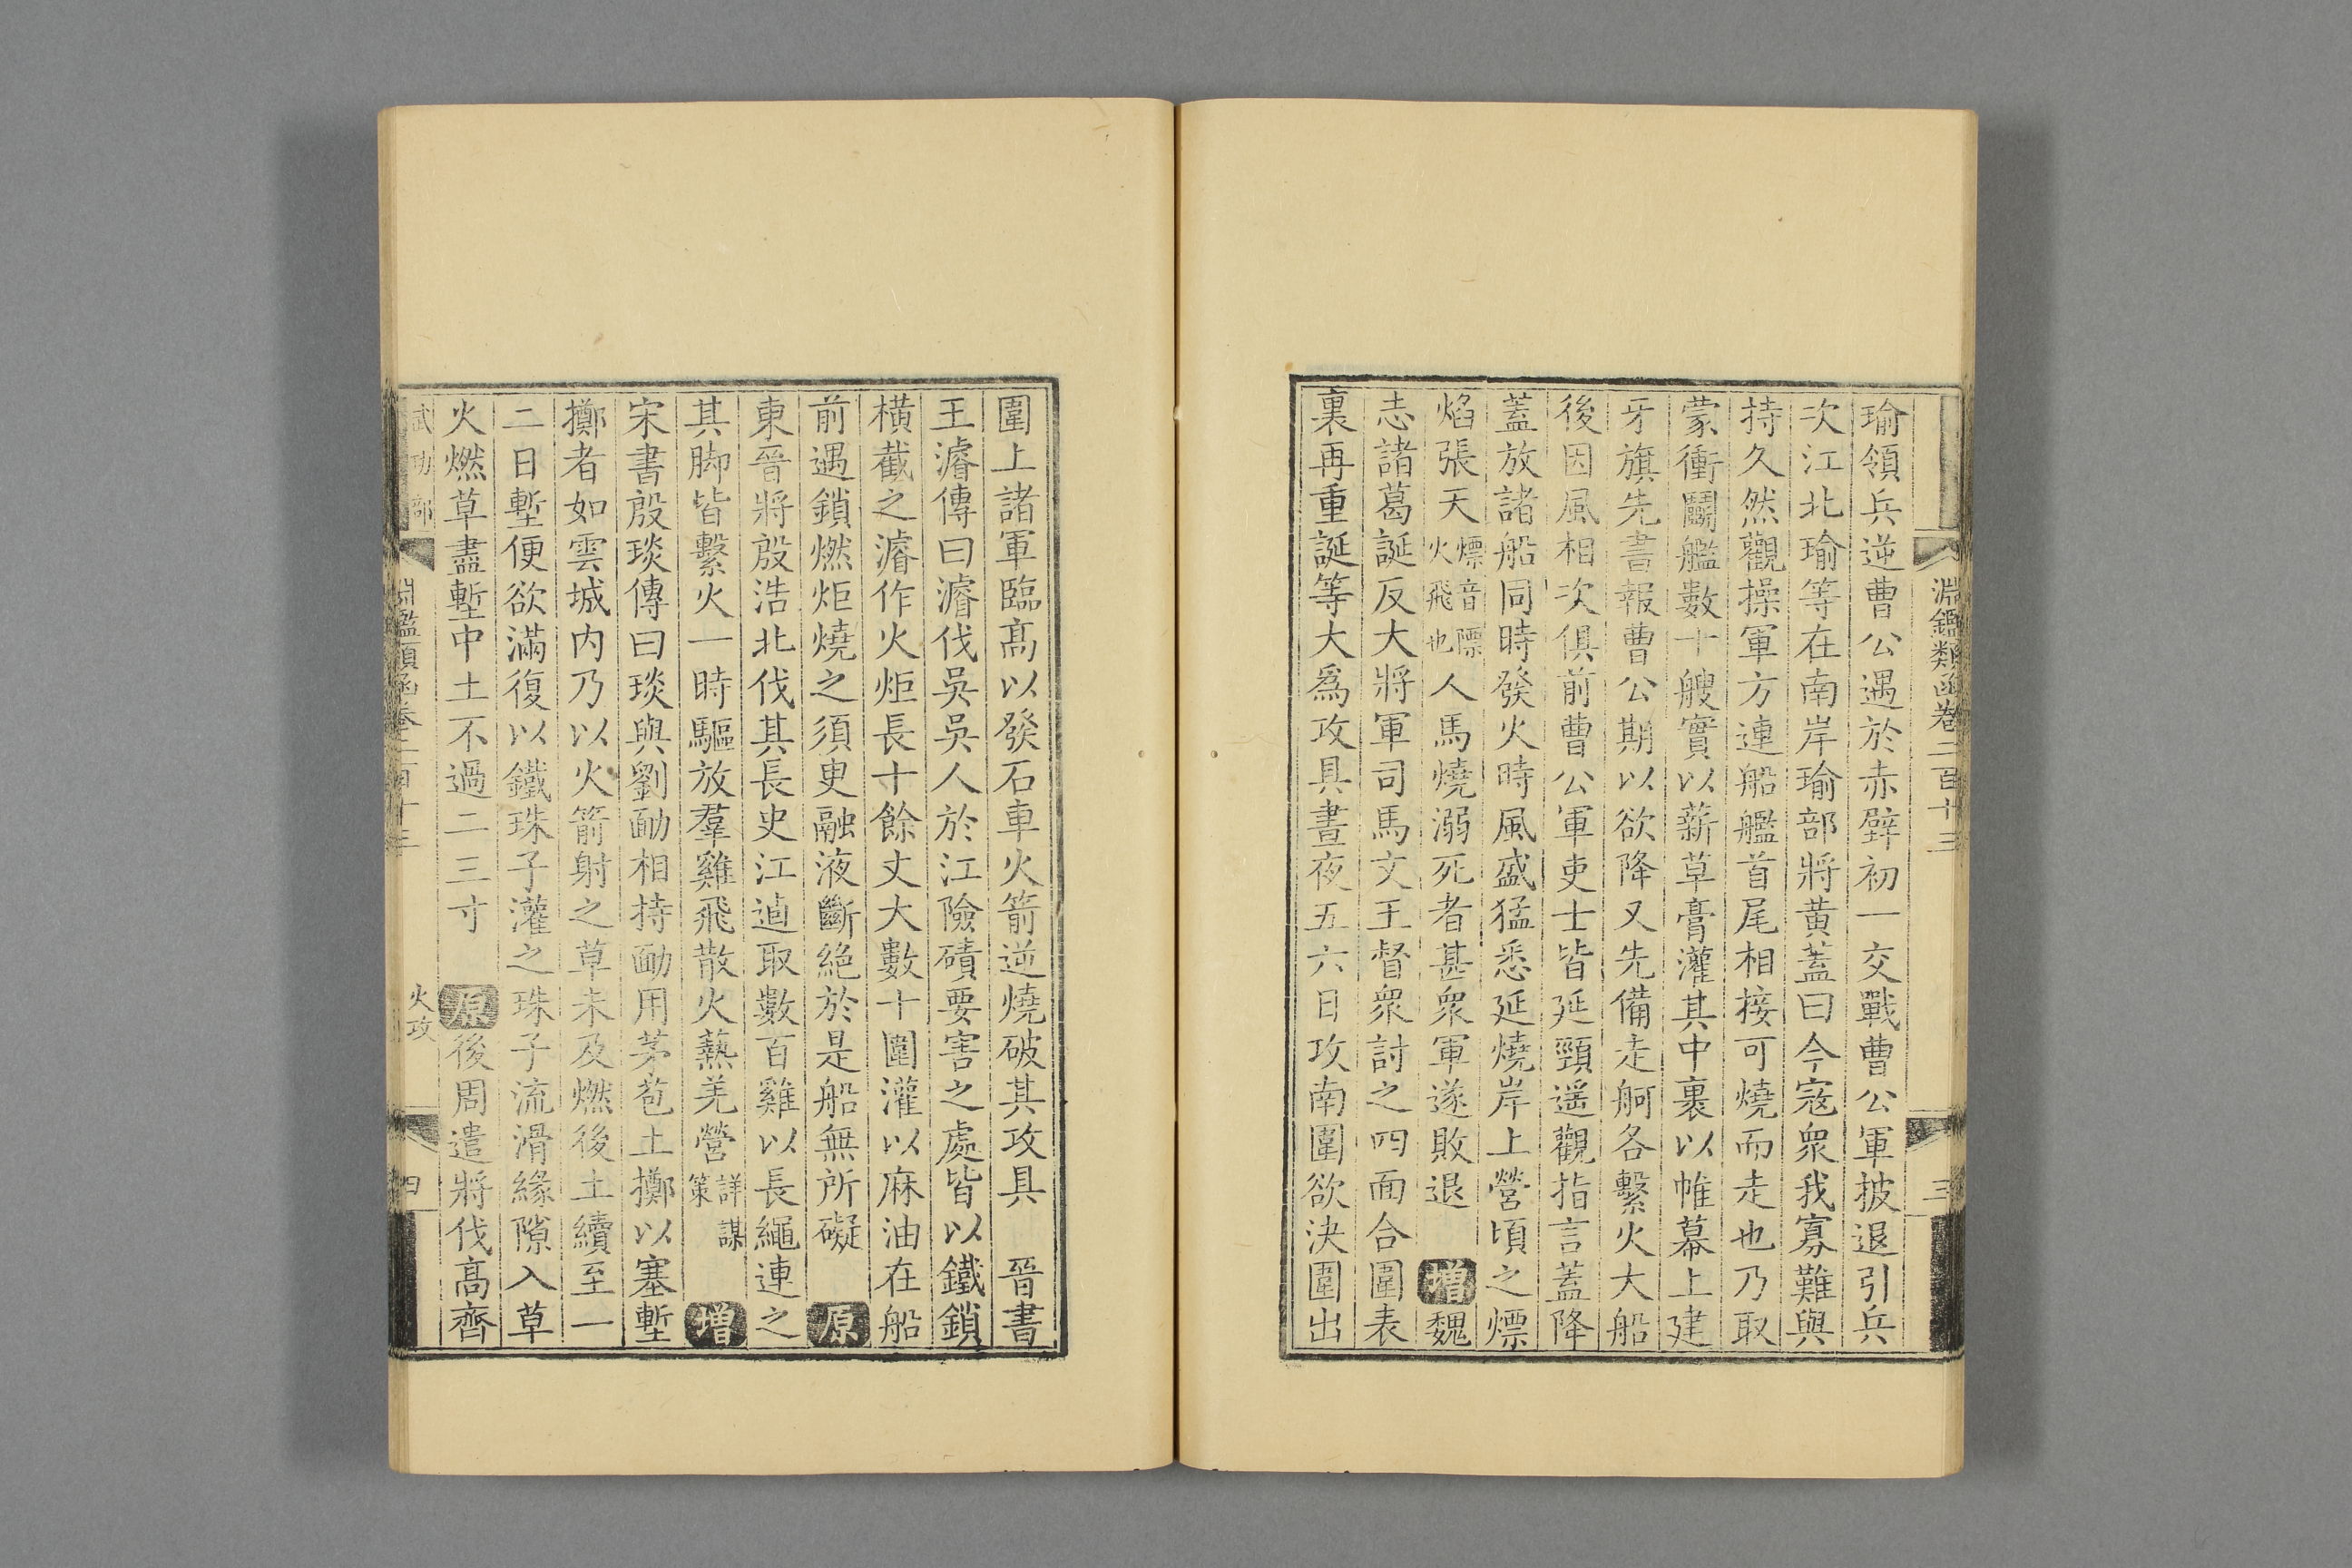 淵鑑類函卷二百十三
三
瑜領兵逆曹公遇於赤壁初一交戰曹公軍披退引兵
次江北瑜等在南岸瑜部將黄蓋曰今寇衆我寡難與
持久然觀操軍方連船艦首尾相接可燒而走也乃取
蒙衝鬭艦數十艘實以薪草膏灌其中裹以帷幕上建
牙旗先書報曹公期以欲降又先備走舸各繫火大船
後因風相次俱前曹公軍吏士皆延頸遥觀指言蓋降
蓋放諸船同時發火時風盛猛悉延燒岸上營頃之熛
焰張天熛音㶾火飛也人馬燒溺死者甚衆軍遂敗退 增魏
志諸葛誕反大將軍司馬文王督衆討之四面合圍表
裏再重誕等大爲攻具晝夜五六日攻南圍欲決圍出
圍上諸軍臨髙以發石車火箭逆燒破其攻具 晉書
王濬傳曰濬伐吳吳人於江險磧要害之處皆以鐵鎖
橫截之濬作火炬長十餘丈大數十圍灌以麻油在船
前遇鎖燃炬燒之須臾融液斷絶於是船無所礙 原
東晉將殷浩北伐其長史江逌取數百雞以長繩連之
其脚皆繫火一時驅放羣雞飛散火爇羌營詳謀策 增
宋書殷琰傳曰琰與劉勔相持勔用茅苞土擲以塞塹
擲者如雲城内乃以火箭射之草未及燃後土續至一
二日塹便欲滿復以鐵珠子灌之珠子流滑緣隙入草
火燃草盡塹中土不過二三寸 原後周遣將伐髙齊
武功部
淵鑑類函卷二百十三
火攻
四